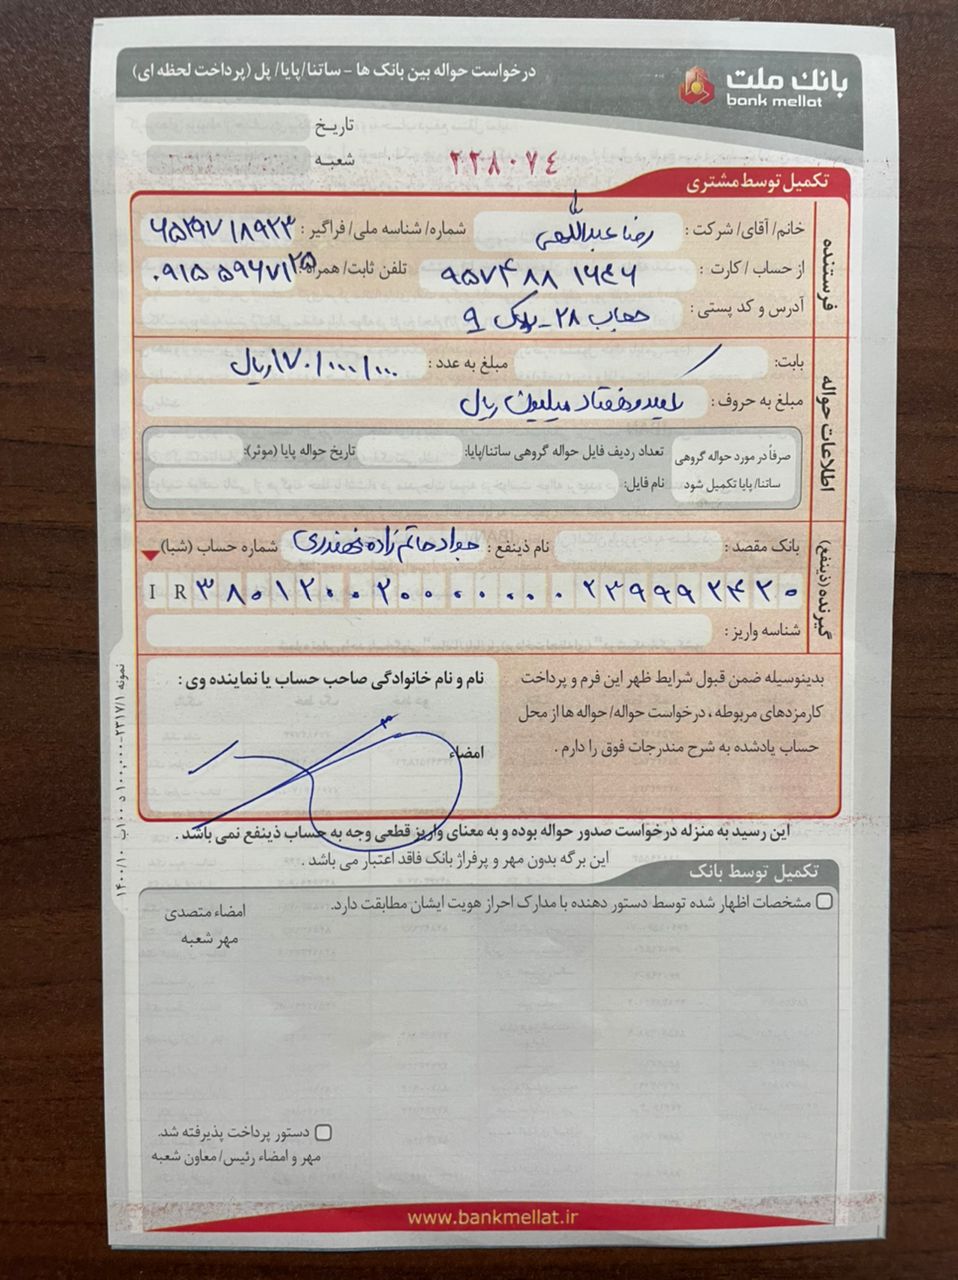 بانک ملت
bank mellat
درخواست حواله بین بانک ها - ساتنا/پایا/ پل (پرداخت لحظه ای)
تاریخ
شعبه
۲۲۸۰۷۴
تکمیل توسط مشتری
فرستنده
خانم/ آقای/ شرکت : رضا عبداللهی شماره/ شناسه ملی/ فراگیر :
از حساب / کارت : ۹۵۷۴۸۸ ۱۶۴۶ تلفن ثابت/ همراه: ۰۹۱۵ ۵۹۶۷۱۲۵
آدرس و کد پستی : ۲۸ - پلاک ۹
اطلاعات حواله
بابت: مبلغ به عدد : ۱۷۰/۰۰۰/۰۰۰ ریال
مبلغ به حروف : یکصد و هفتاد میلیون ریال
صرفاً در مورد حواله گروهی ساتنا/ پایا تکمیل شود
تعداد ردیف فایل حواله گروهی ساتنا/پایا: تاریخ حواله پایا (موثر):
نام فایل:
گیرنده (ذینفع)
بانک مقصد : نام ذینفع : جواد حاتم زاده شماره حساب (شبا)
IR ۳۸۰۱۲۰۰۲۰۰۰۰۰۰۰۲۳۹۹۹۲۴۲۰
شناسه واریز :
بدینوسیله ضمن قبول شرایط ظهر این فرم و پرداخت
کارمزدهای مربوطه ، درخواست حواله/ حواله ها از محل
حساب یادشده به شرح مندرجات فوق را دارم .
نام و نام خانوادگی صاحب حساب یا نماینده وی :
امضاء
این رسید به منزله درخواست صدور حواله بوده و به معنای واریز قطعی وجه به حساب ذینفع نمی باشد .
این برگه بدون مهر و پرفراژ بانک فاقد اعتبار می باشد .
تکمیل توسط بانک
مشخصات اظهار شده توسط دستور دهنده با مدارک احراز هویت ایشان مطابقت دارد.
امضاء متصدی
مهر شعبه
دستور پرداخت پذیرفته شد.
مهر و امضاء رئیس/ معاون شعبه
www.bankmellat.ir
نمونه ۲۳۱۷/۱-۱۰۰,۰۰۰ د ۱۰۰ب ۱۴۰۰/۱۰